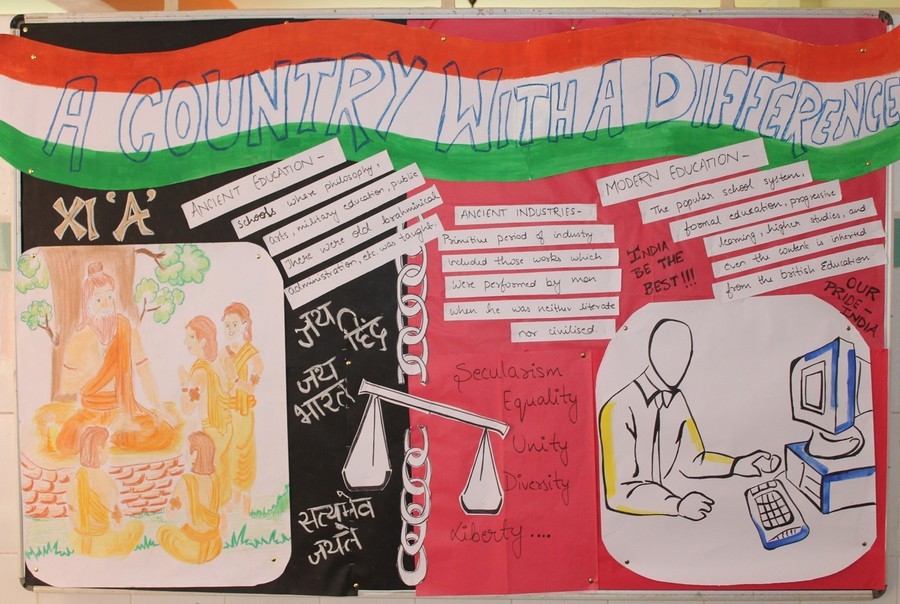 A COUNTRY WITH A DIFFERENCE
XI 'A'
ANCIENT EDUCATION -
schools where philosophy,
arts, military education, public
There were old brahminical
administration, etc was taught.
जय हिंद
जय
भारत
सत्यमेव
जयते
ANCIENT INDUSTRIES-
Primitive period of industry
included those works which
were performed by man
when he was neither literate
nor civilised.
Secularism
Equality
Unity
Diversity
Liberty ....
INDIA
BE THE
BEST!!!
MODERN EDUCATION -
The popular school system,
formal education, progressive
learning, higher studies, and
even the content is inherited
from the british Education
OUR
PRIDE-
INDIA